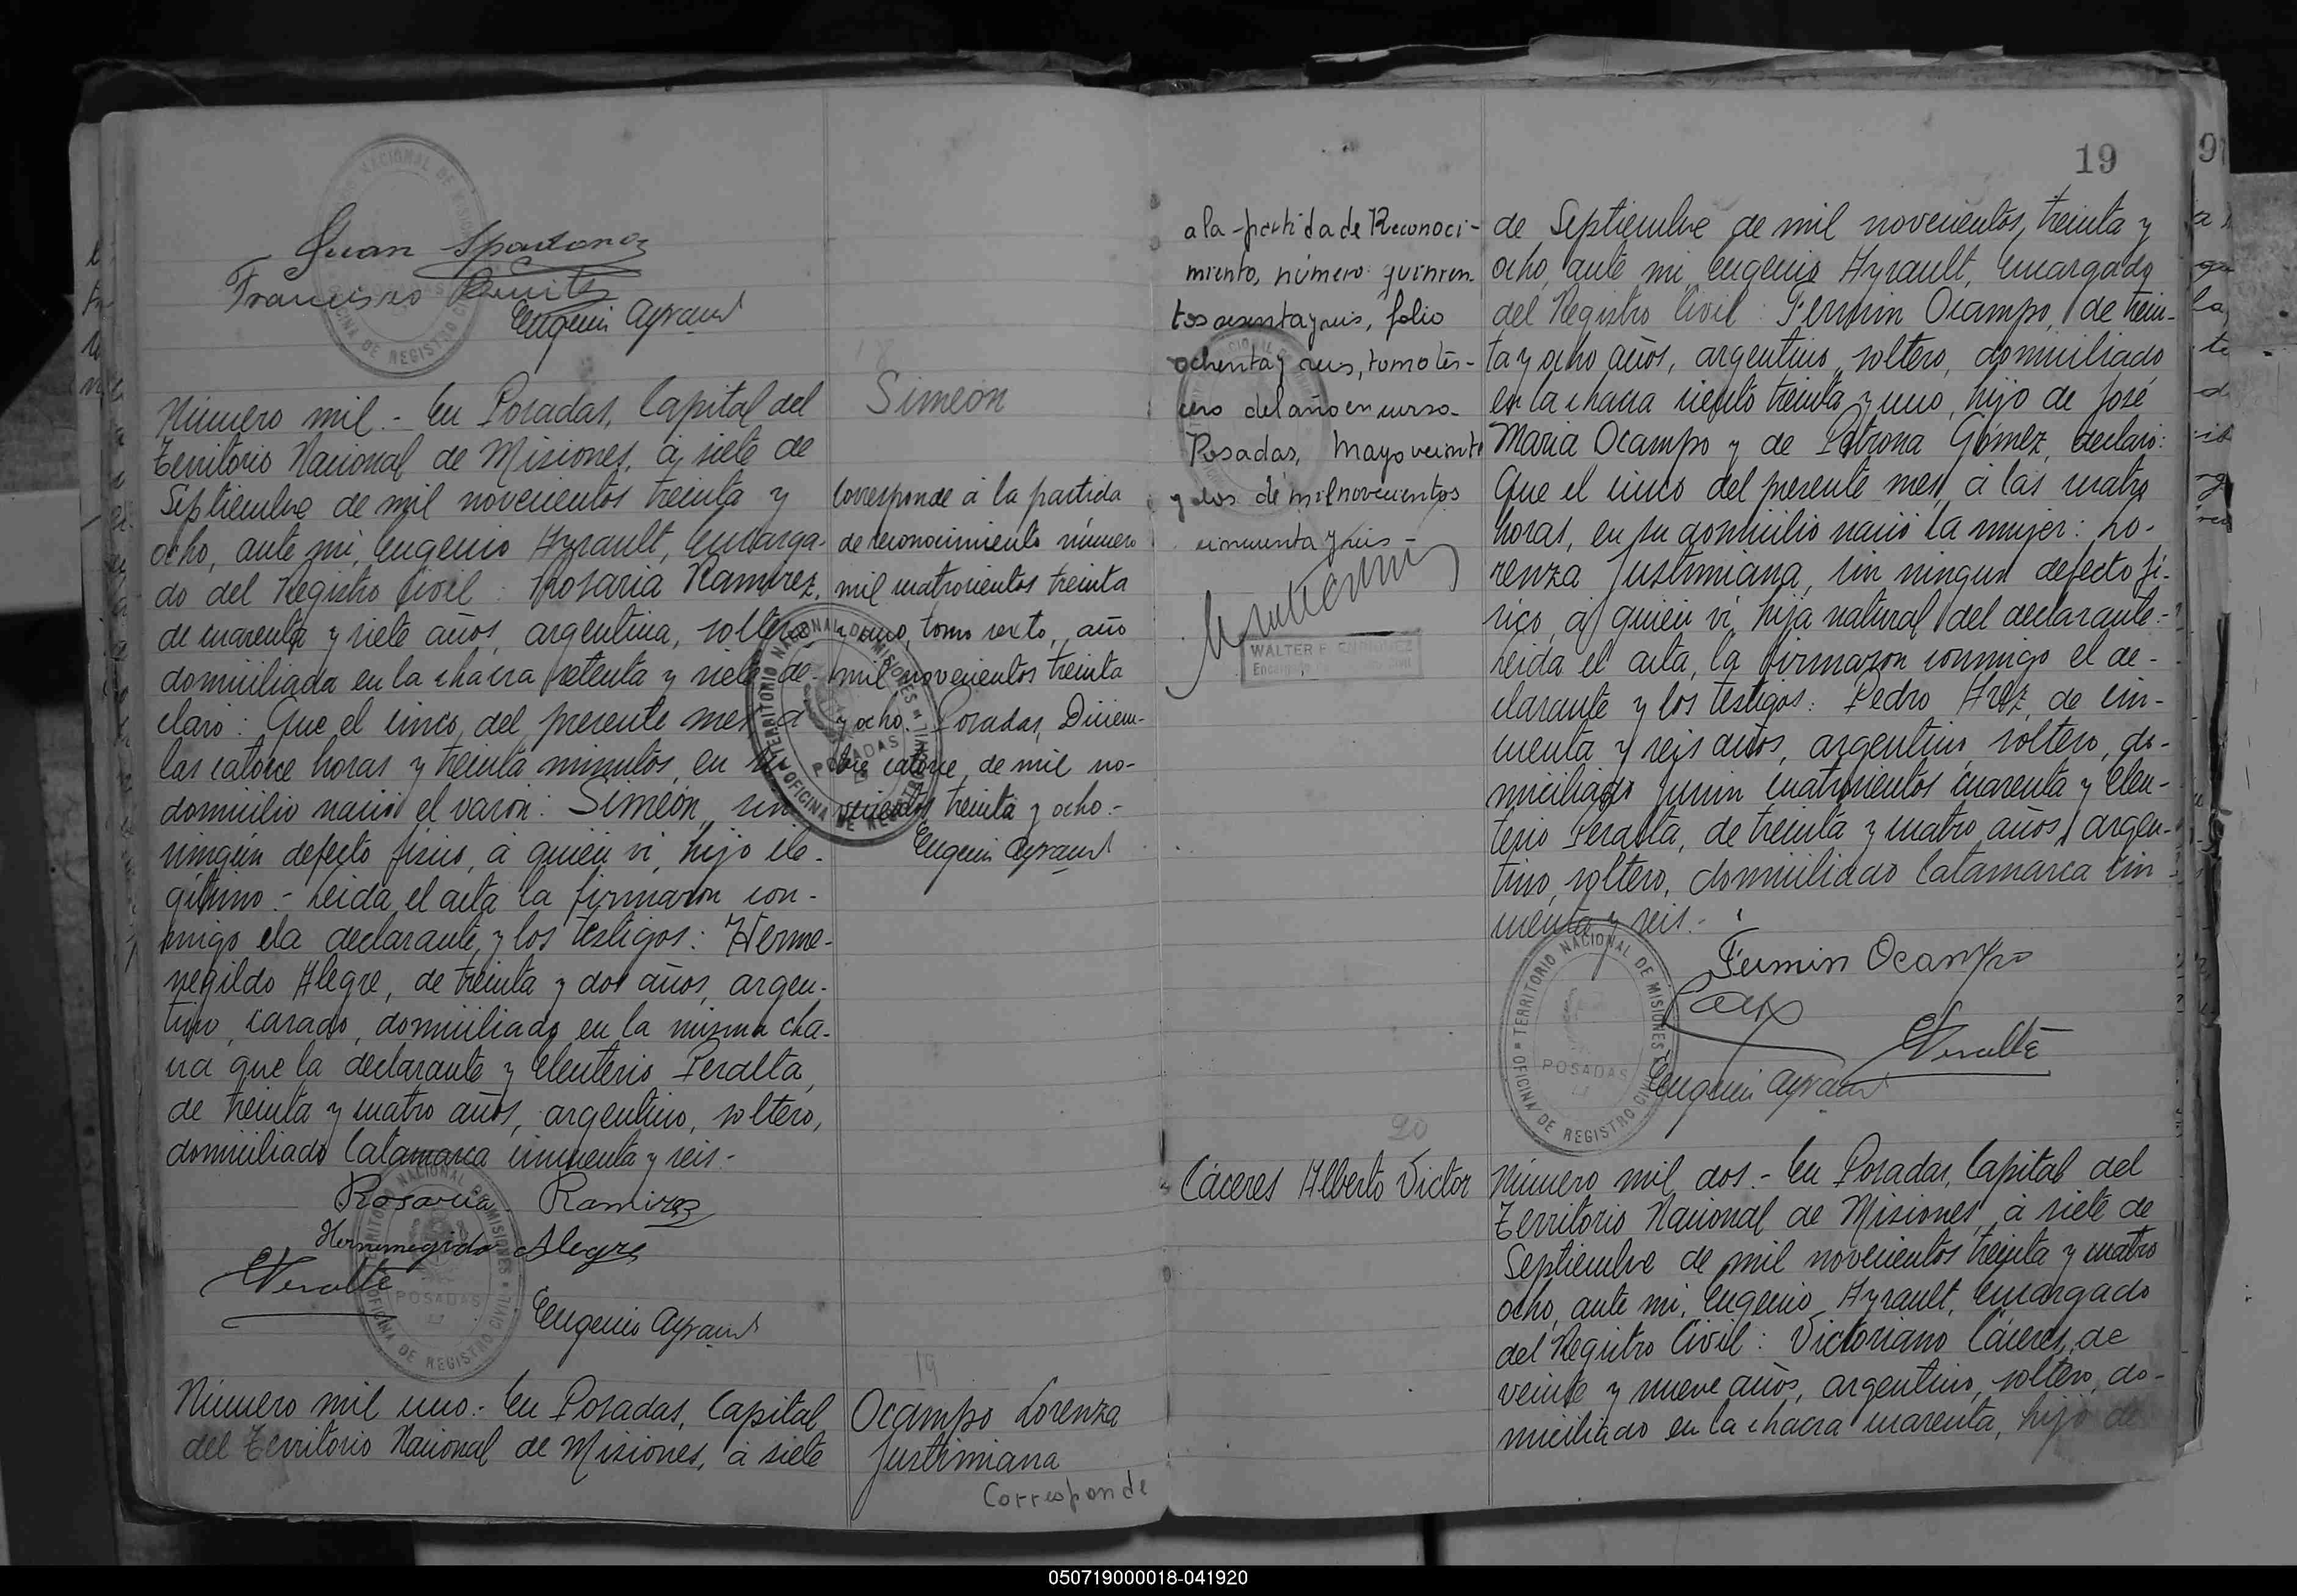 Juan
Francisco Benitez
Eugenio Ayrault
18
Simeón
Número mil.- En Posadas, Capital del
Territorio Nacional de Misiones, á siete de
Septiembre de mil novecientos treinta y
ocho, ante mi, Eugenio Ayrault, Encarga-
do del Registro Civil: Rosaria Ramirez,
de cuarenta y siete años, argentina, soltera
domiciliada en la chacra setenta y siete de-
claró: Que el cinco del presente mes á
las catorce horas y treinta minutos, en su
domicilio nació el varón: Simeón, sin
ningún defecto físico, á quién vi, hijo ile-
gítimo.- Leida el acta la firmaron con-
migo ela declarante, y los testigos: Herme-
negildo Alegre, de treinta y dos años, argen-
tino, casado, domiciliado en la misma cha-
cra que la declarante y Eleuterio Peralta,
de treinta y cuatro años, argentino, soltero,
domiciliado Catamarca cincuenta y seis.-
Rosaria Ramirez
Hermenegido Alegre
EPeralta
Eugenio Ayrault
Corresponde á la partida
de reconocimiento número
mil cuatrocientos treinta
y uno, tomo sexto, año
mil novecientos treinta
y ocho. Posadas, Diciem-
bre catorce, de mil no-
vecientos treinta y ocho.-
Eugenio Ayrault
TERRITORIO NACIONAL DE MISIONES
POSADAS
OFICINA DE REGISTRO CIVIL
19
Número mil uno.- En Posadas, Capital
del Territorio Nacional de Misiones, á siete
Ocampo Lorenza
Justimiana
Corresponde
19
a la partida de Reconoci-
miento, número quinien
tos sesenta y seis, folio
ochenta y seis, tomo ter-
cero del año en curso-
Posadas, Mayo veinte
y dos de mil novecientos
cincuenta y seis -
WALTER E. ENRIQUEZ
de Septiembre de mil novecientos, treinta y
ocho, ante mi, Eugenio Ayrault, Encargado
del Registro Civil: Fermin Ocampo, de trein-
ta y ocho años, argentino, soltero, domiciliado
en la chacra ciento treinta y uno, hijo de José
Maria Ocampo y de Petrona Gómez, declaró:
Que el cinco del presente mes, á las cuatro
horas, en su domicilio nació la mujer: Lo-
renza Justimiana, sin ningun defecto fí-
sico, á quién vi, hija natural del declarante.-
Leida el acta, la firmaron conmigo el de-
clarante y los testigos: Pedro de cin-
cuenta y seis años, argentino, soltero, do-
miciliado Junin cuatrocientos cuarenta y Eleu-
terio Peralta, de treinta y cuatro años, argen-
tino, soltero, domiciliado Catamarca cin
cuenta y seis.-
Fermin Ocampo
EPeralta
Eugenio Ayrault
TERRITORIO NACIONAL DE MISIONES
POSADAS
OFICINA DE REGISTRO CIVIL
20
Cáceres Alberto Victor
Número mil dos.- En Posadas, Capital del
Territorio Nacional de Misiones, á siete de
Septiembre de mil novecientos treinta y cuatro
ocho, ante mi, Eugenio Ayrault, Encargado
del Registro Civil: Victoriano Cáceres, de
veinte y nueve años, argentino, soltero, do-
miciliado en la chacra cuarenta, hijo de
050719000018-041920